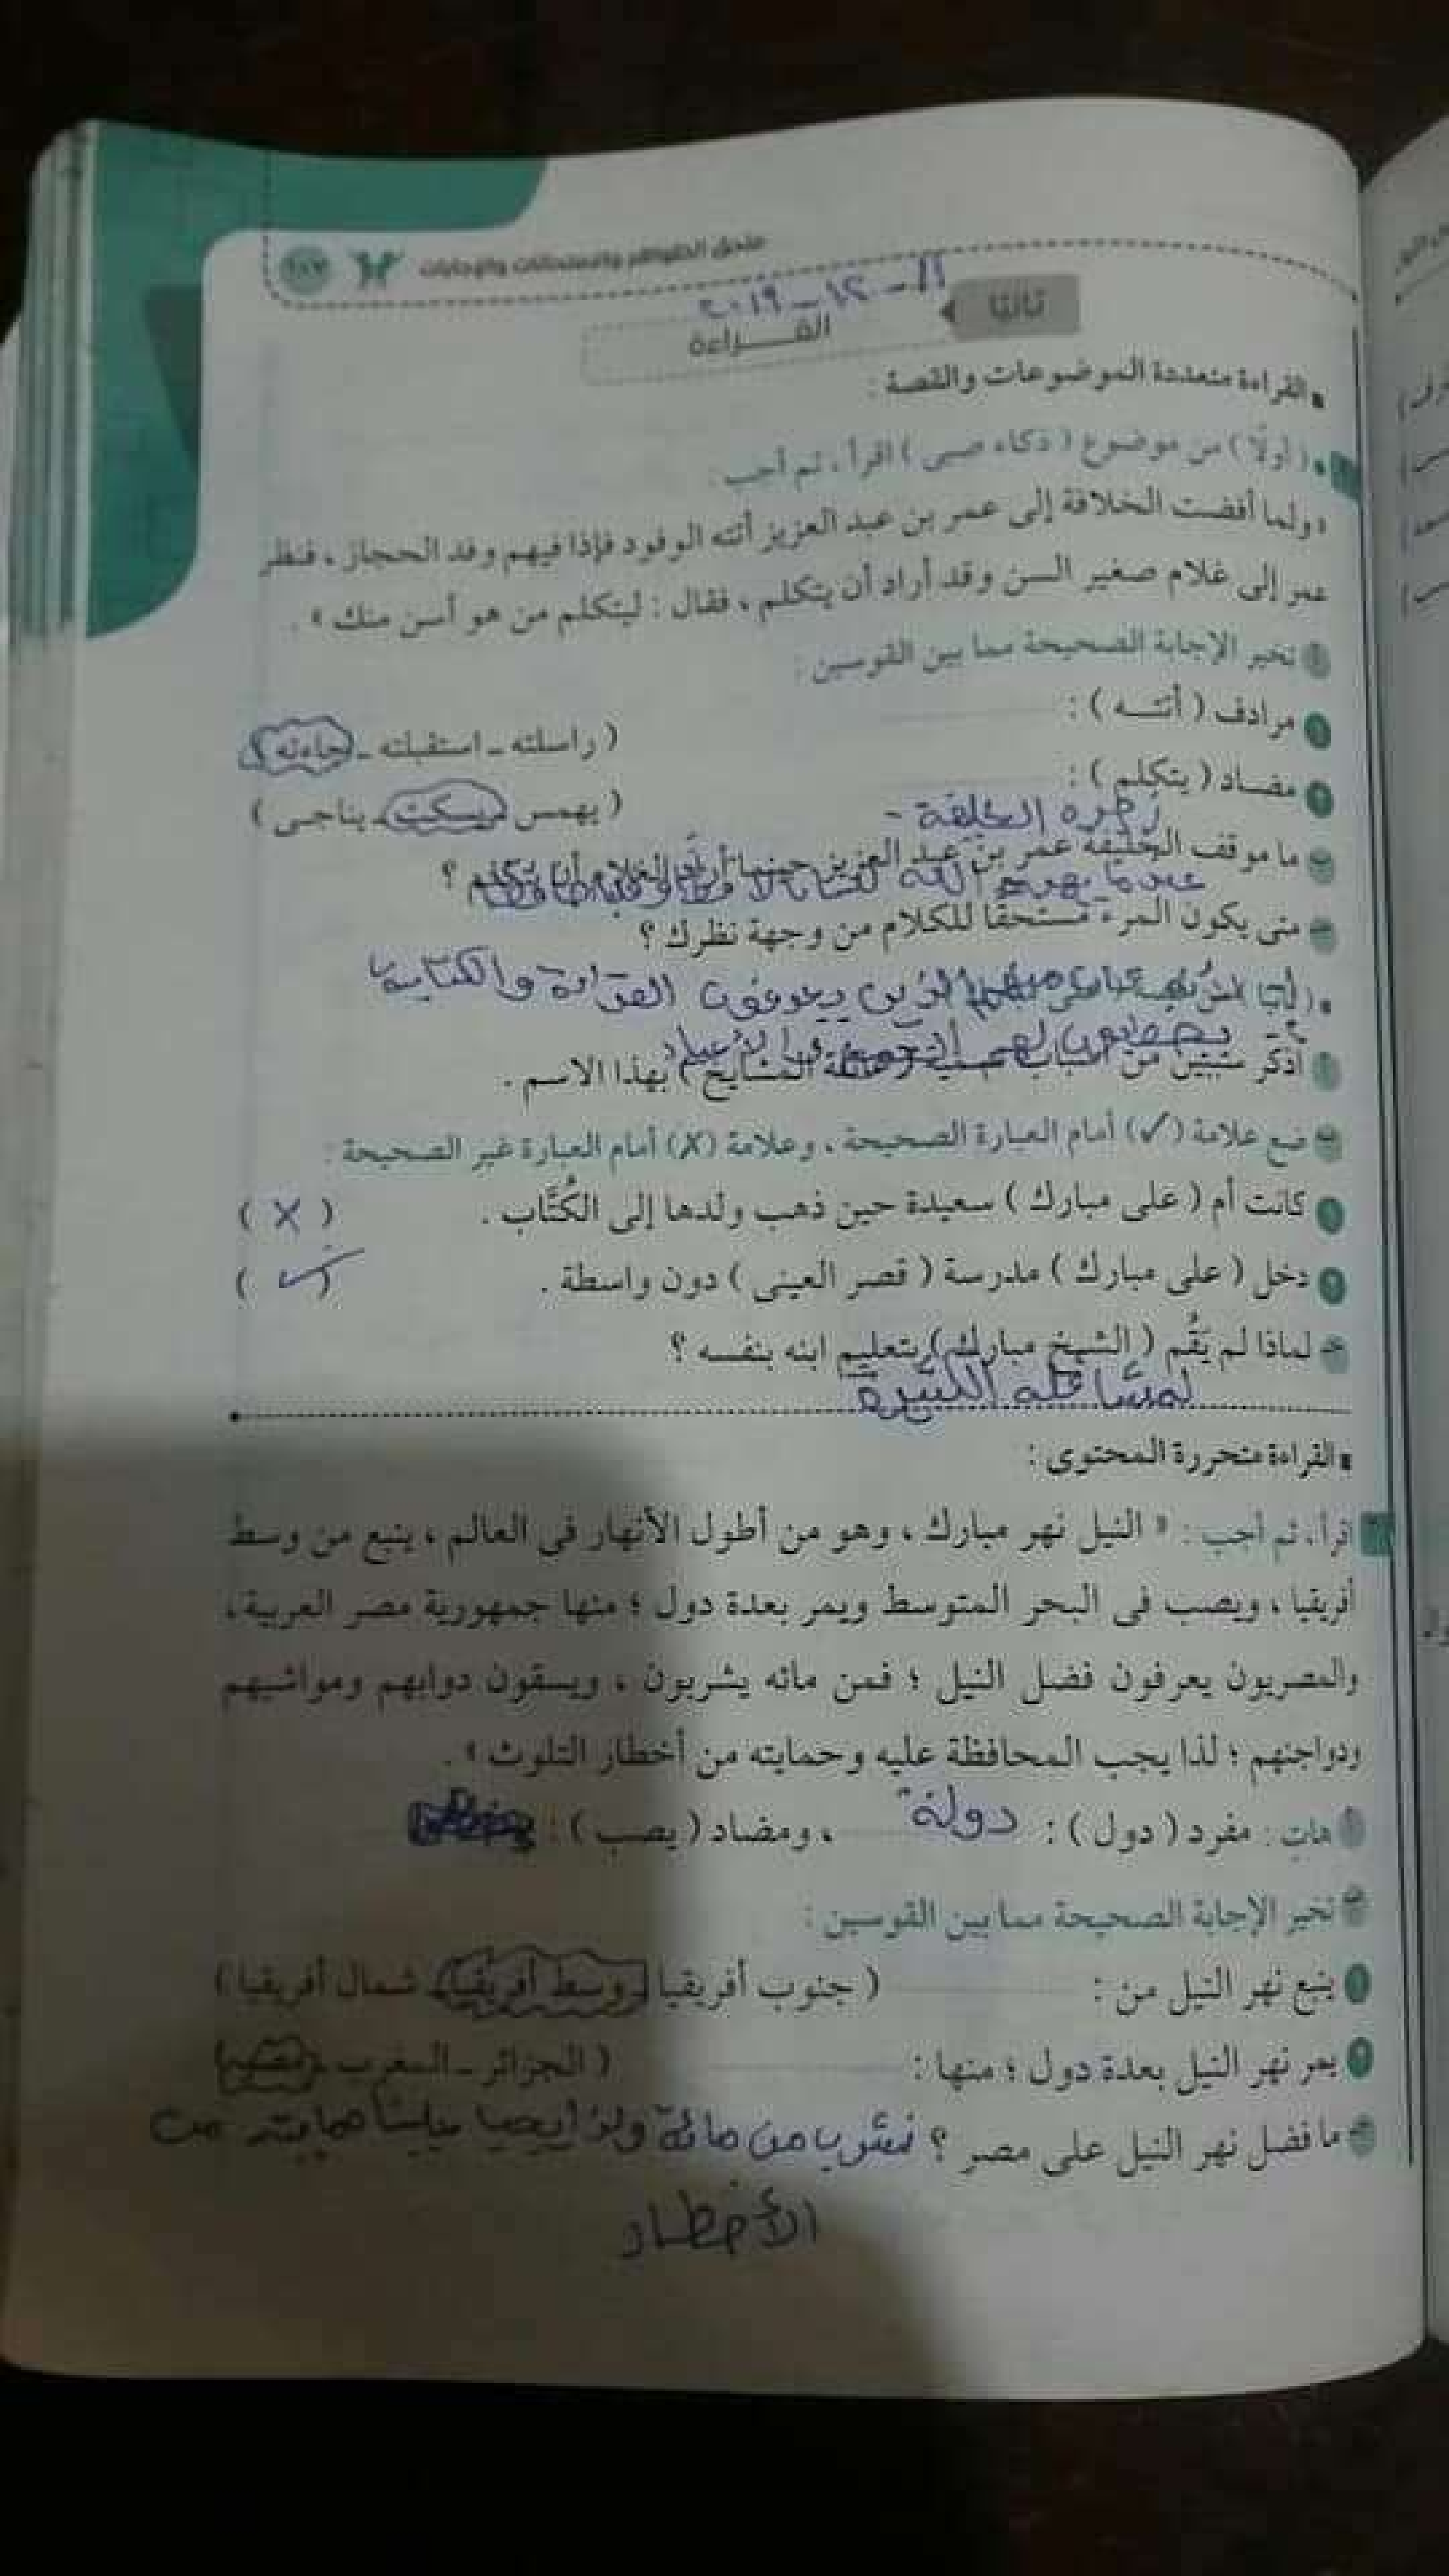 ملحق الظواهر والامتحانات والإجابات
ثانيًا
١١-١٢-٢٠١٩
القـــراءة
القراءة متعددة الموضوعات والقصة :
( أولًا ) من موضوع ( ذكاء صبى ) اقرأ ، ثم أجب :
« ولما أفضت الخلافة إلى عمر بن عبد العزيز أتته الوفود فإذا فيهم وفد الحجاز ، فنظر
عمر إلى غلام صغير السن وقد أراد أن يتكلم ، فقال : ليتكلم من هو أسن منك » .
تخير الإجابة الصحيحة مما بين القوسين :
١ مرادف ( أتتـــه ) :
( راسلته ـ استقبلته ـ جاءته )
٢ مضـاد ( يتكلم ) :
( يهمس ـ يسكت ـ يناجى )
الخليفة -
ما موقف الخليفة عمر بن عبد العزيز حينما أراد الغلام أن يتكلم ؟
عندما
متى يكون المرء مستحقا للكلام من وجهة نظرك ؟
الذين يعرفون القراءة والكتابة
اذكر سببين من أسباب ( عائلة المشايخ ) بهذا الاسم .
ب ضع علامة (✓) أمام العبارة الصحيحة ، وعلامة (X) أمام العبارة غير الصحيحة :
١ كانت أم ( على مبارك ) سعيدة حين ذهب ولدها إلى الكُتَّاب . ( X )
٢ دخل ( على مبارك ) مدرسة ( قصر العينى ) دون واسطة . ( ✓ )
جـ لماذا لم يَقُم ( الشيخ مبارك ) بتعليم ابنه بنفسه ؟
لمشاغله الكثيرة
القراءة متحررة المحتوى :
اقرأ ، ثم أجب : « النيل نهر مبارك ، وهو من أطول الأنهار فى العالم ، ينبع من وسط
أفريقيا ، ويصب فى البحر المتوسط ويمر بعدة دول ؛ منها جمهورية مصر العربية ،
والمصريون يعرفون فضل النيل ؛ فمن مائه يشربون ، ويسقون دوابهم ومواشيهم
ودواجنهم ؛ لذا يجب المحافظة عليه وحمايته من أخطار التلوث » .
هات : مفرد ( دول ) : دولة ، ومضاد ( يصب ) :
ب تخير الإجابة الصحيحة مما بين القوسين :
١ ينبع نهر النيل من : ( جنوب أفريقيا ـ وسط أفريقيا ـ شمال أفريقيا )
٢ يمر نهر النيل بعدة دول ؛ منها : ( الجزائر ـ المغرب ـ مصر )
جـ ما فضل نهر النيل على مصر ؟ نشرب من مائة علينا حمايته من
الأخطار